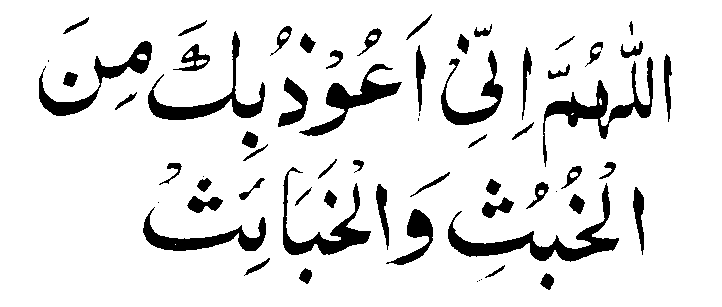 اَللّٰهُمَّ اِنِّيْ اَعُوْذُ بِكَ مِنَ
الْخُبُثِ وَالْخَبَائِثْ